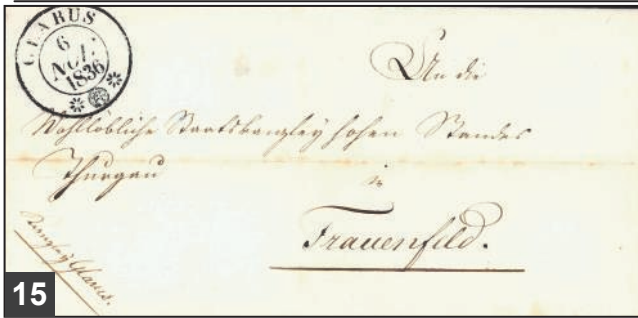 GLARUS
6
NOV.
1836
An die
Wohllöbliche Staatskanzley hohen Standes
Thurgau
in
Frauenfeld.
Kanzley Glarus.
15